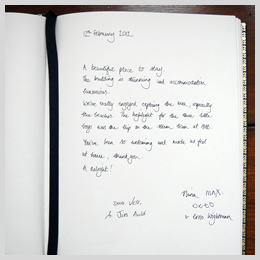 12th February 2012
A beautiful place to stay.
The building is stunning and accommodation
luxurious.
We've really enjoyed exploring the area, especially
the beaches. The highlight for the three little
boys was the trip on the steam train at
You've been so welcoming and made us feel
at home, thank you.
A delight!
Nana MAX.
& Jim Auld
& Greg